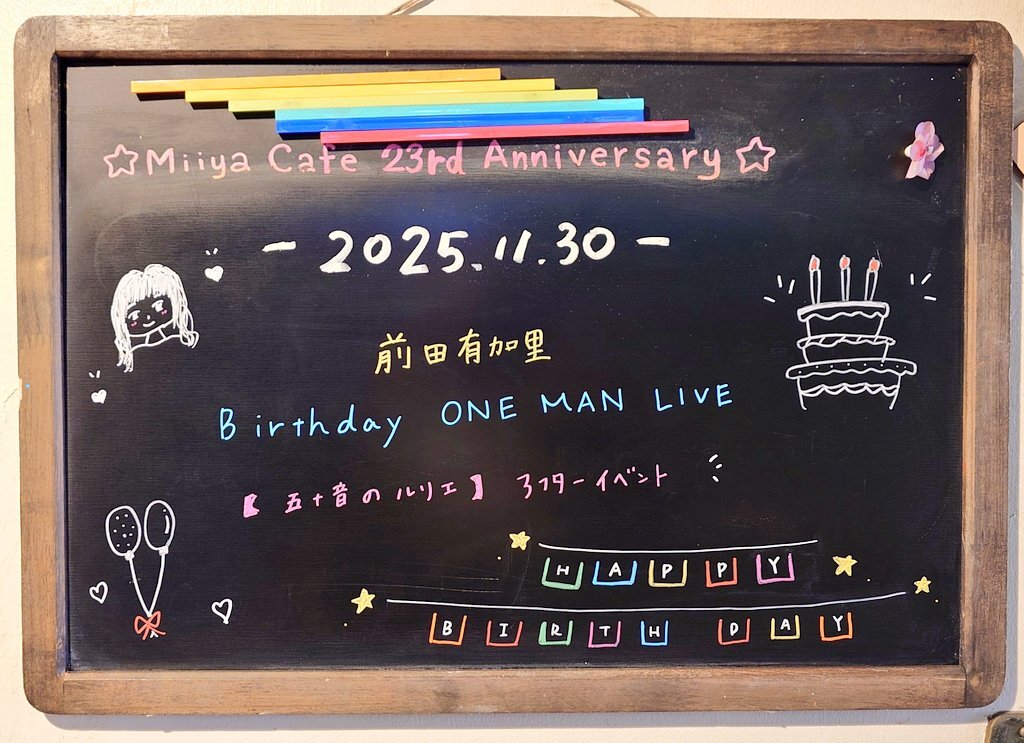 ☆Miiya Cafe 23rd Anniversary☆
- 2025.11.30 -
前田有加里
Birthday ONE MAN LIVE
【五十音のルリエ】アフターイベント
HAPPY
BIRTH DAY